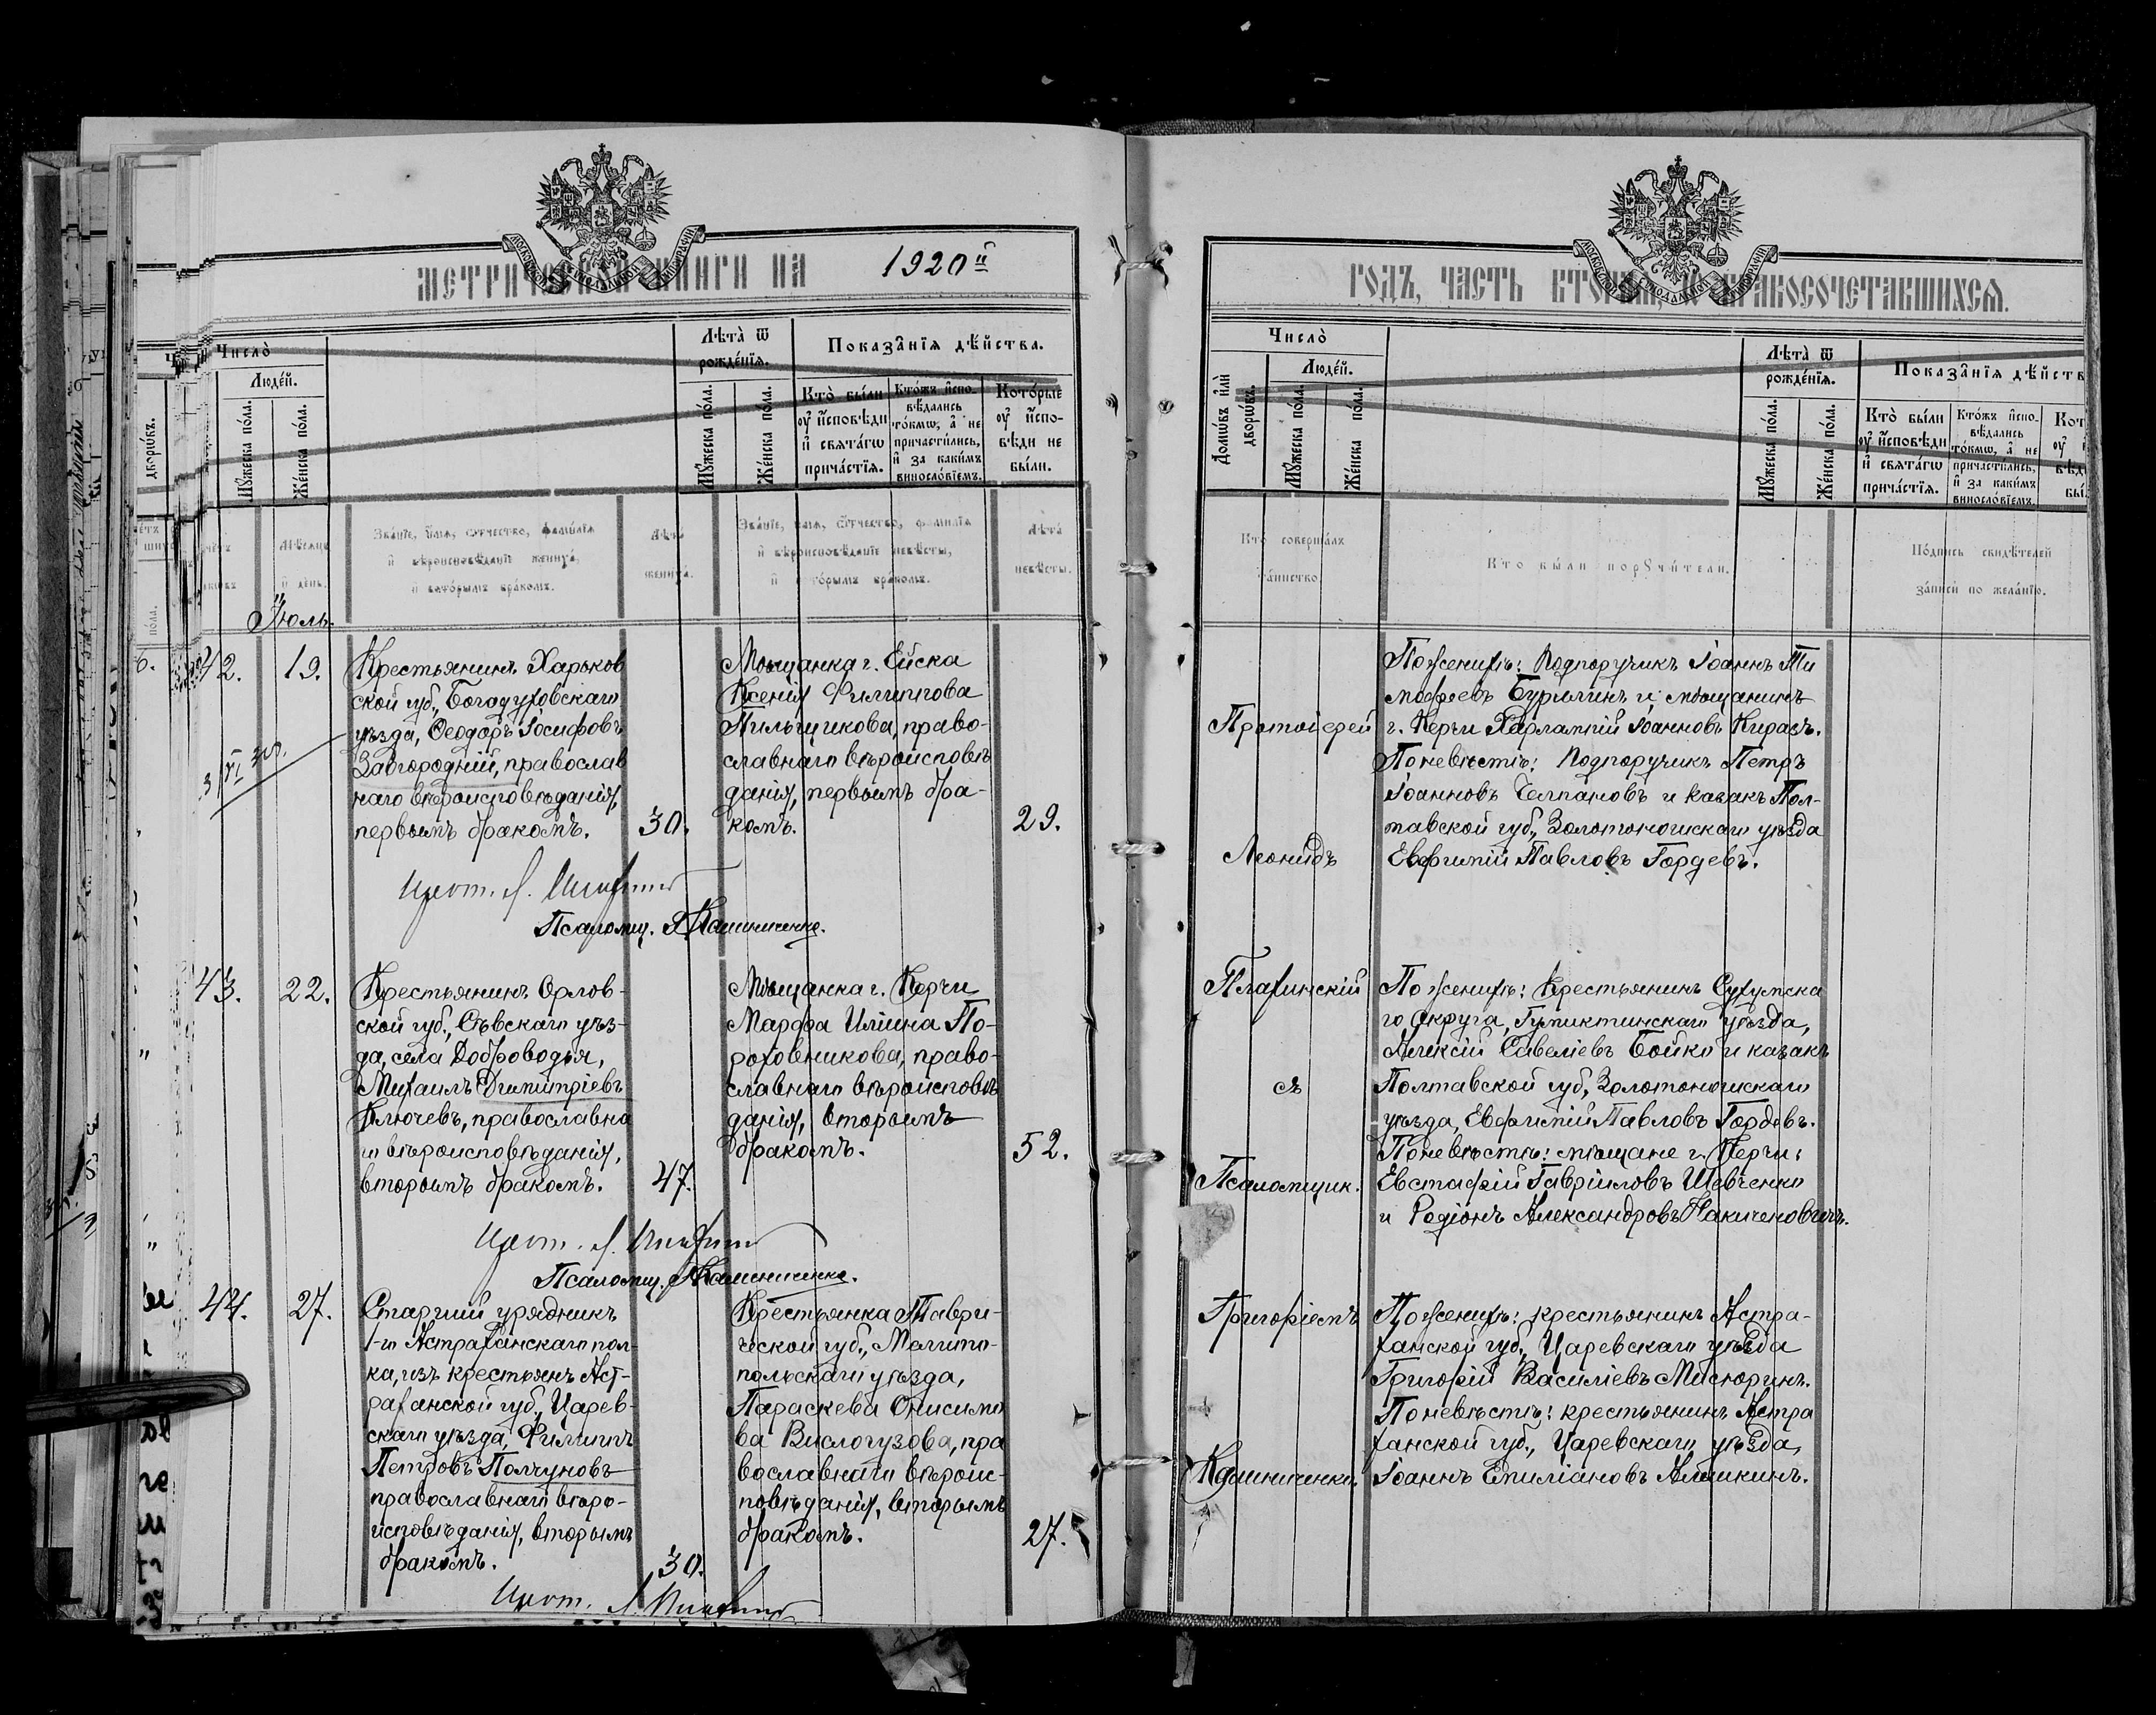 МЕТРИЧЕСКОЙ КНИГИ НА 1920й
Число̀
Люде́й.
Мꙋ́жеска по́ла.
Же́нска по́ла.
Лѣта̀ ѿ
рожде́нїѧ.
Мꙋ́жеска по́ла.
Же́нска по́ла.
Показа̑нїѧ дѣ́йства.
Кто̀ бы́ли
ᲂу҆ и҆́сповѣди
и҆ свѧта́гѡ
прича́стїѧ.
Кто́жъ и҆спо-
вѣ́дались
то́кмѡ, а҆ не
причасти́лись,
и҆ за каки́мъ
виносло́вїемъ.
Кото́рые
ᲂу҆ и҆́спо-
вѣди не
бы́ли.
Мѣ́сѧцъ
и҆ де́нь.
Зва́нїе, и҆́мѧ, ѻ҆́тчество, фами́лїѧ
и҆ вѣроисповѣ́данїе жениха̀,
и҆ кото́рымъ бра́комъ.
Лѣта̀
жениха̀.
Зва́нїе, и҆́мѧ, ѻ҆́тчество, фами́лїѧ
и҆ вѣроисповѣ́данїе невѣ́сты,
и҆ кото́рымъ бра́комъ.
Лѣта̀
невѣ́сты.
Іюль.
42.
19.
Крестьянинъ Харьков
ской губ., Богодуховскаго
уѣзда, Ѳеодоръ Іосифовъ
Завгородній, православ
наго вѣроисповѣданія,
первымъ бракомъ.
30.
Мѣщанка г. Ейска
Ксенія Филиппова
Пильщикова, право-
славнаго вѣроисповѣ
данія, первымъ бра-
комъ.
29.
Прот. Л.
Псаломщ. Г Калиниченко.
43.
22.
Крестьянинъ Орлов-
ской губ., Сѣвскаго уѣз-
да, села Доброводья,
Михаилъ Димитріевъ
Ключевъ, православна
го вѣроисповѣданія,
вторымъ бракомъ.
47.
Мѣщанка г. Керчи
Марфа Иліина По-
роховникова, право-
славнаго вѣроисповѣ
данія, вторымъ
бракомъ.
52.
Прот. Л.
Псаломщ. Г Калиниченко.
44.
27.
Старшій урядникъ
1-го Астраханскаго пол-
ка, изъ крестьянъ Аст-
раханской губ., Царев-
скаго уѣзда, Филиппъ
Петровъ Полчуновъ
православнаго вѣро-
исповѣданія, вторымъ
бракомъ.
30.
Крестьянка Таври-
ческой губ., Мелито-
польскаго уѣзда,
Параскева Онисимо
ва Вислогузова, пра
вославнаго вѣроис-
повѣданія, вторымъ
бракомъ.
27.
Прот. Л.
ГОДЪ, ЧАСТЬ ВТОРАЯ, О БРАКОСОЧЕТАВШИХСЯ.
Число̀
Домѡ́въ и҆лѝ
дворѡ́въ.
Люде́й.
Мꙋ́жеска по́ла.
Же́нска по́ла.
Лѣта̀ ѿ
рожде́нїѧ.
Мꙋ́жеска по́ла.
Же́нска по́ла.
Показа̑нїѧ дѣ́йств
Кто̀ бы́ли
ᲂу҆ и҆́сповѣди
и҆ свѧта́гѡ
прича́стїѧ.
Кто́жъ и҆спо-
вѣ́дались
то́кмѡ, а҆ не
причасти́лись,
и҆ за каки́мъ
виносло́вїемъ.
Кто̀ соверша́лъ
та́инство.
Кто̀ бы́ли порꙋчи́тели.
По́дпись свидѣ́телей
за́писи по жела́нїю.
Протоіерей
Леонидъ
съ
Псаломщик.
Григоріемъ
Калиниченко.
По женихѣ: Подпоручикъ Іоаннъ Ти
мофеевъ Бурилинъ и мѣщанинъ
г. Керчи Харлампій Іоанновъ Киразъ.
По невѣстѣ: Подпоручикъ Петръ
Іоанновъ Челпановъ и казакъ Пол-
тавской губ., Золотоношскаго уѣзда
Евфимій Павловъ Гордевъ.
По женихѣ: Крестьянинъ Сухумска
го округа, уѣзда,
Алексій Савеліевъ Бойко и казакъ
Полтавской губ., Золотоношскаго
уѣзда, Евфимій Павловъ Гордевъ.
По невѣстѣ: мѣщане г. Керчи:
Евстафій Гавріиловъ Шевченко
и Родіонъ Александровъ
По женихѣ: крестьянинъ Астра-
ханской губ., Царевскаго уѣзда
Григорій Василіевъ Мисюринъ.
По невѣстѣ: крестьянинъ Астра
ханской губ., Царевскаго уѣзда,
Іоаннъ Емиліановъ Алешкинъ.